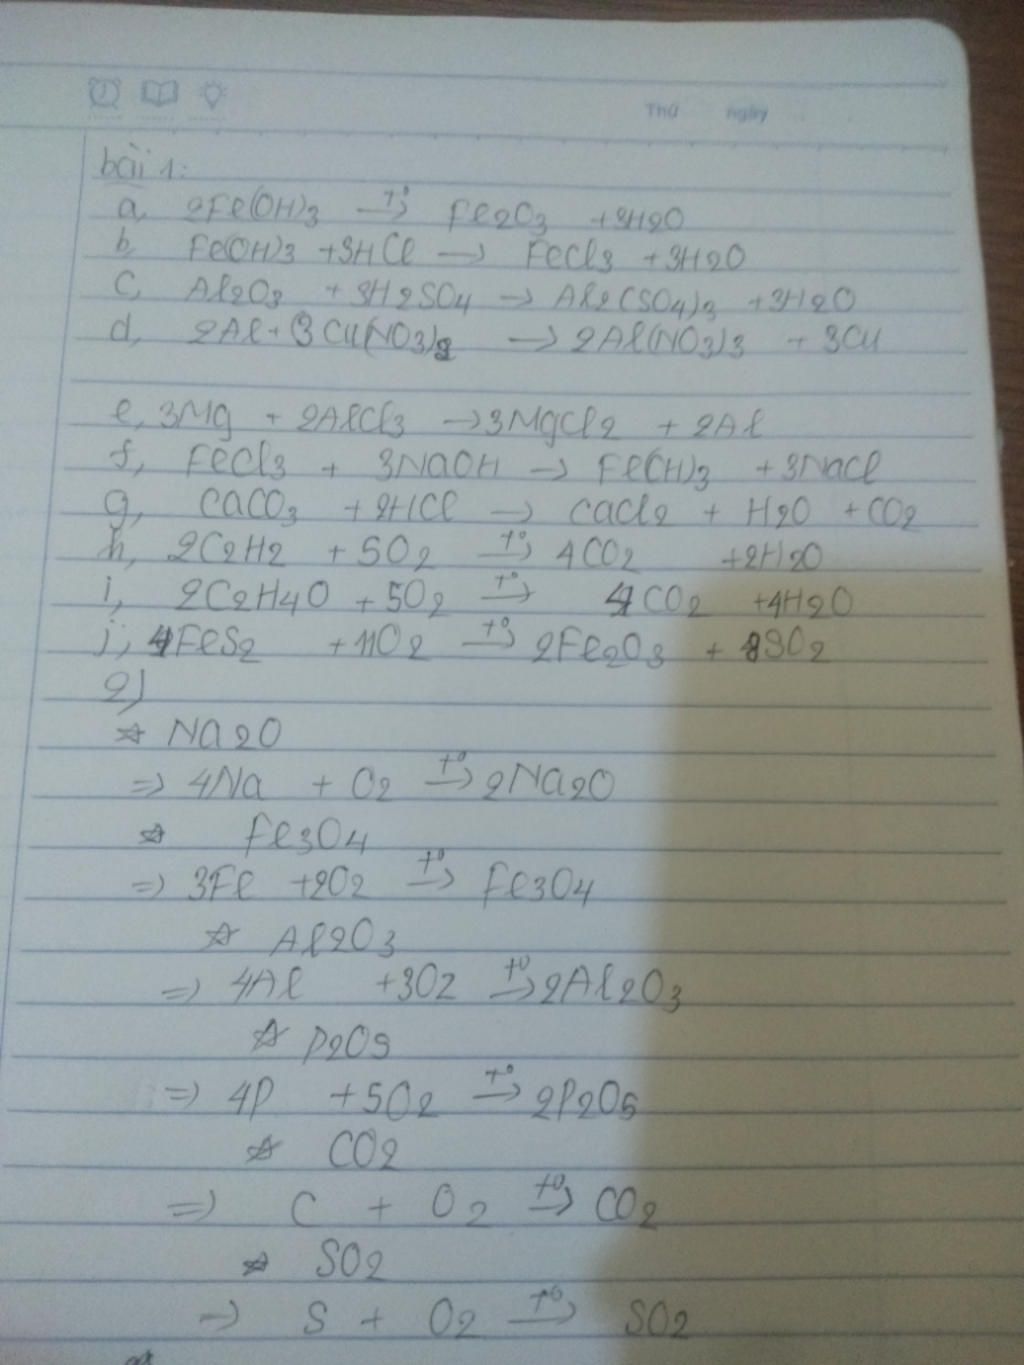 Thứ ngày
bài 1:
a, 2Fe(OH)3 t°→ Fe2O3 +3H2O
b, Fe(OH)3 +3HCl → FeCl3 +3H2O
c, Al2O3 +3H2SO4 → Al2(SO4)3 +3H2O
d, 2Al+3Cu(NO3)2 → 2Al(NO3)3 + 3Cu
e, 3Mg + 2AlCl3 → 3MgCl2 + 2Al
f, FeCl3 + 3NaOH → Fe(OH)3 +3NaCl
g, CaCO3 +2HCl → CaCl2 + H2O +CO2
h, 2C2H2 + 5O2 t°→ 4CO2 +2H2O
i, 2C2H4O +5O2 t°→ 4CO2 +4H2O
j, 4FeS2 +11O2 t°→ 2Fe2O3 + 8SO2
2)
☆ Na2O
=> 4Na + O2 t°→ 2Na2O
☆ Fe3O4
=> 3Fe +2O2 t°→ Fe3O4
☆ Al2O3
=> 4Al +3O2 t°→ 2Al2O3
☆ P2O5
=> 4P +5O2 t°→ 2P2O5
☆ CO2
=> C + O2 t°→ CO2
☆ SO2
=> S + O2 t°→ SO2